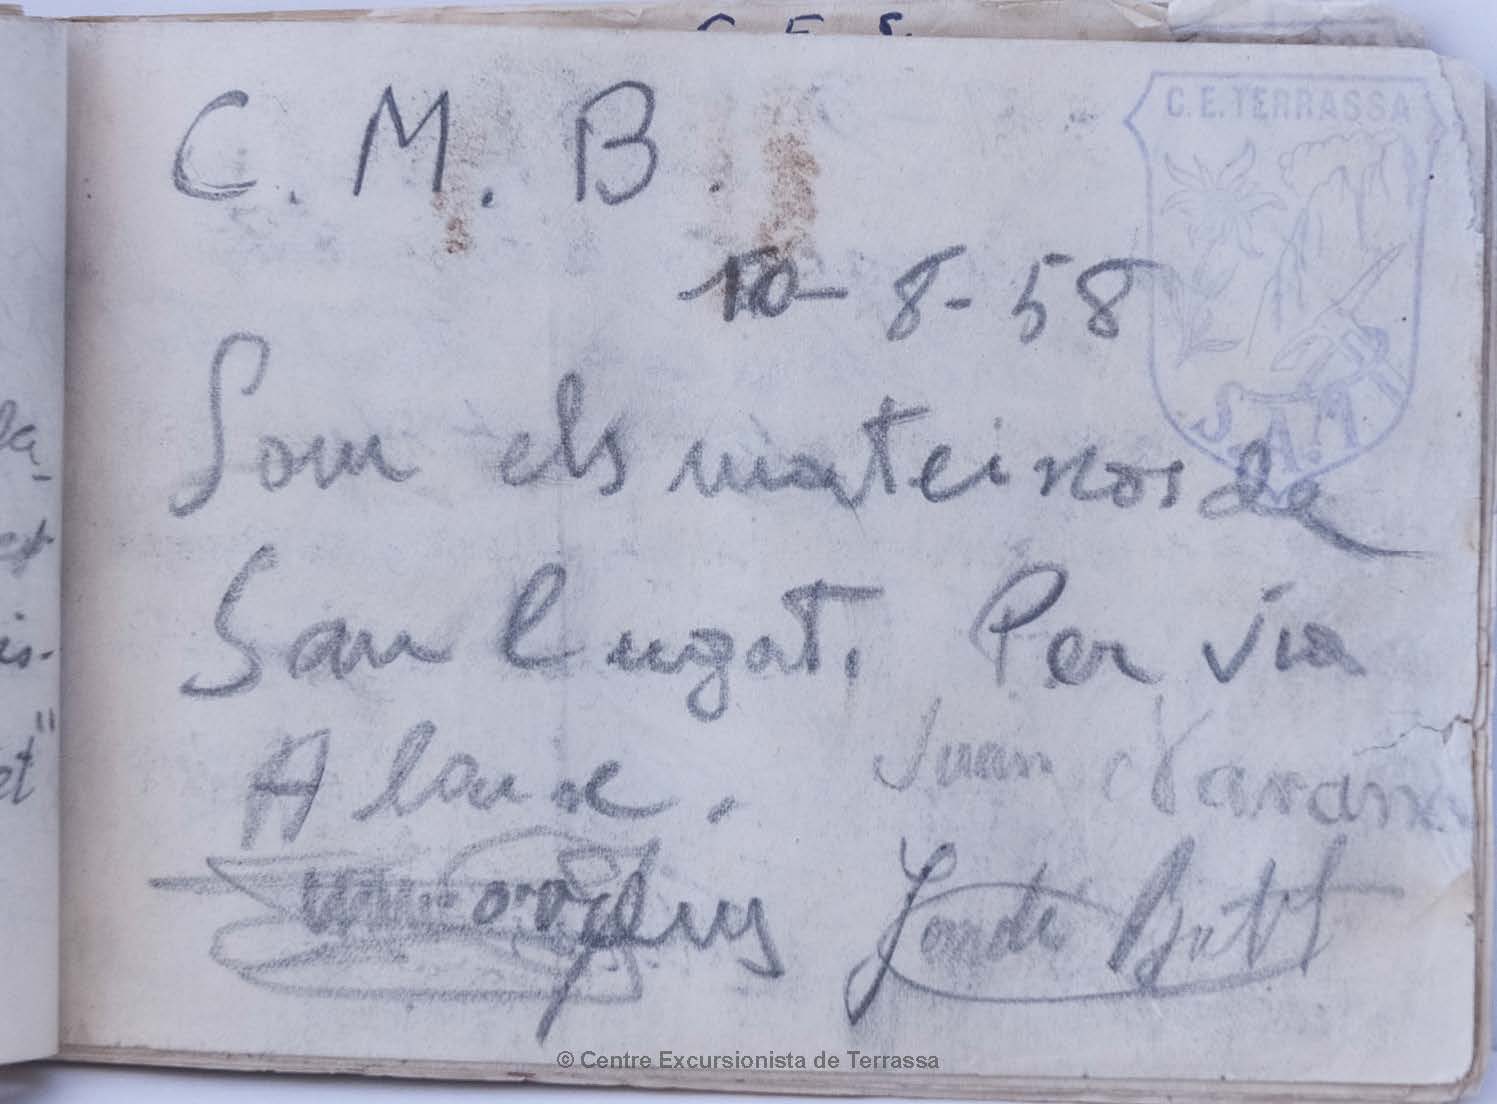 C. E. S.
C. M. B.
C.E. TERRASSA
10-8-58
S.A.M
Som els mateixos de
San Cugat. Per via
A lauxe.
Juan Navarro
Jordi
la-
et
is-
et"
© Centre Excursionista de Terrassa